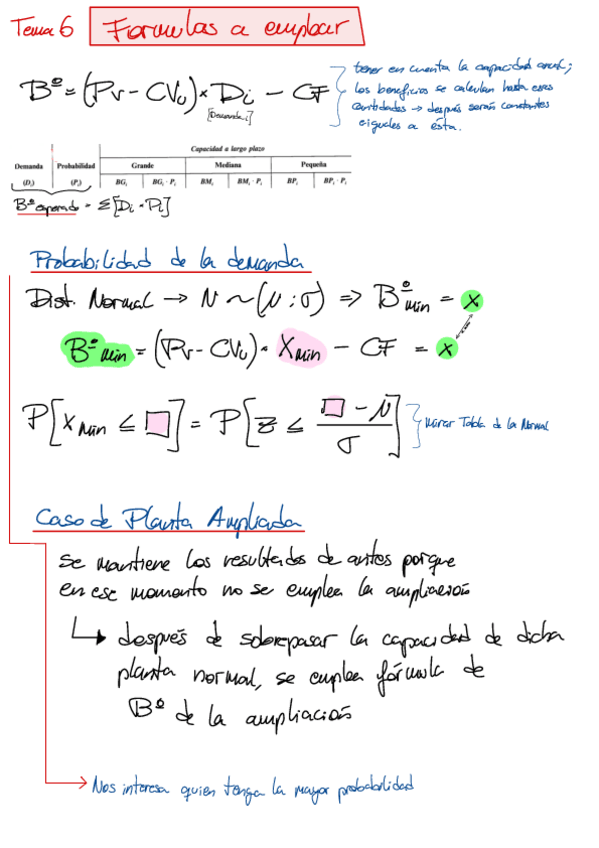 Tema 6 Formulas a emplear
Bº = (Pv - CVu) × Di - CF
[Demanda i]
tener en cuenta la capacidad anual;
los beneficios se calculan hasta esas
cantidades → después serán constantes
e iguales a ésta.
Capacidad a largo plazo
Demanda Probabilidad Grande Mediana Pequeña
(Di) (Pi) BGi BGi · Pi BMi BMi · Pi BPi BPi · Pi
Bº esperado = Σ[Di · Pi]
Probabilidad de la demanda
Dist. Normal → N ~ (μ ; σ) ⇒ Bº min = x
Bº min = (Pv - CVu) · Xmin - CF = x
P[Xmin ≤ □] = P[z ≤ (□ - μ)/σ] Mirar Tabla de la Normal
Caso de Planta Ampliada
Se mantiene los resultados de antes porque
en ese momento no se emplea la ampliación
↳ después de sobrepasar la capacidad de dicha
planta normal, se emplea fórmula de
Bº de la ampliación
→ Nos interesa quien tenga la mayor probabilidad